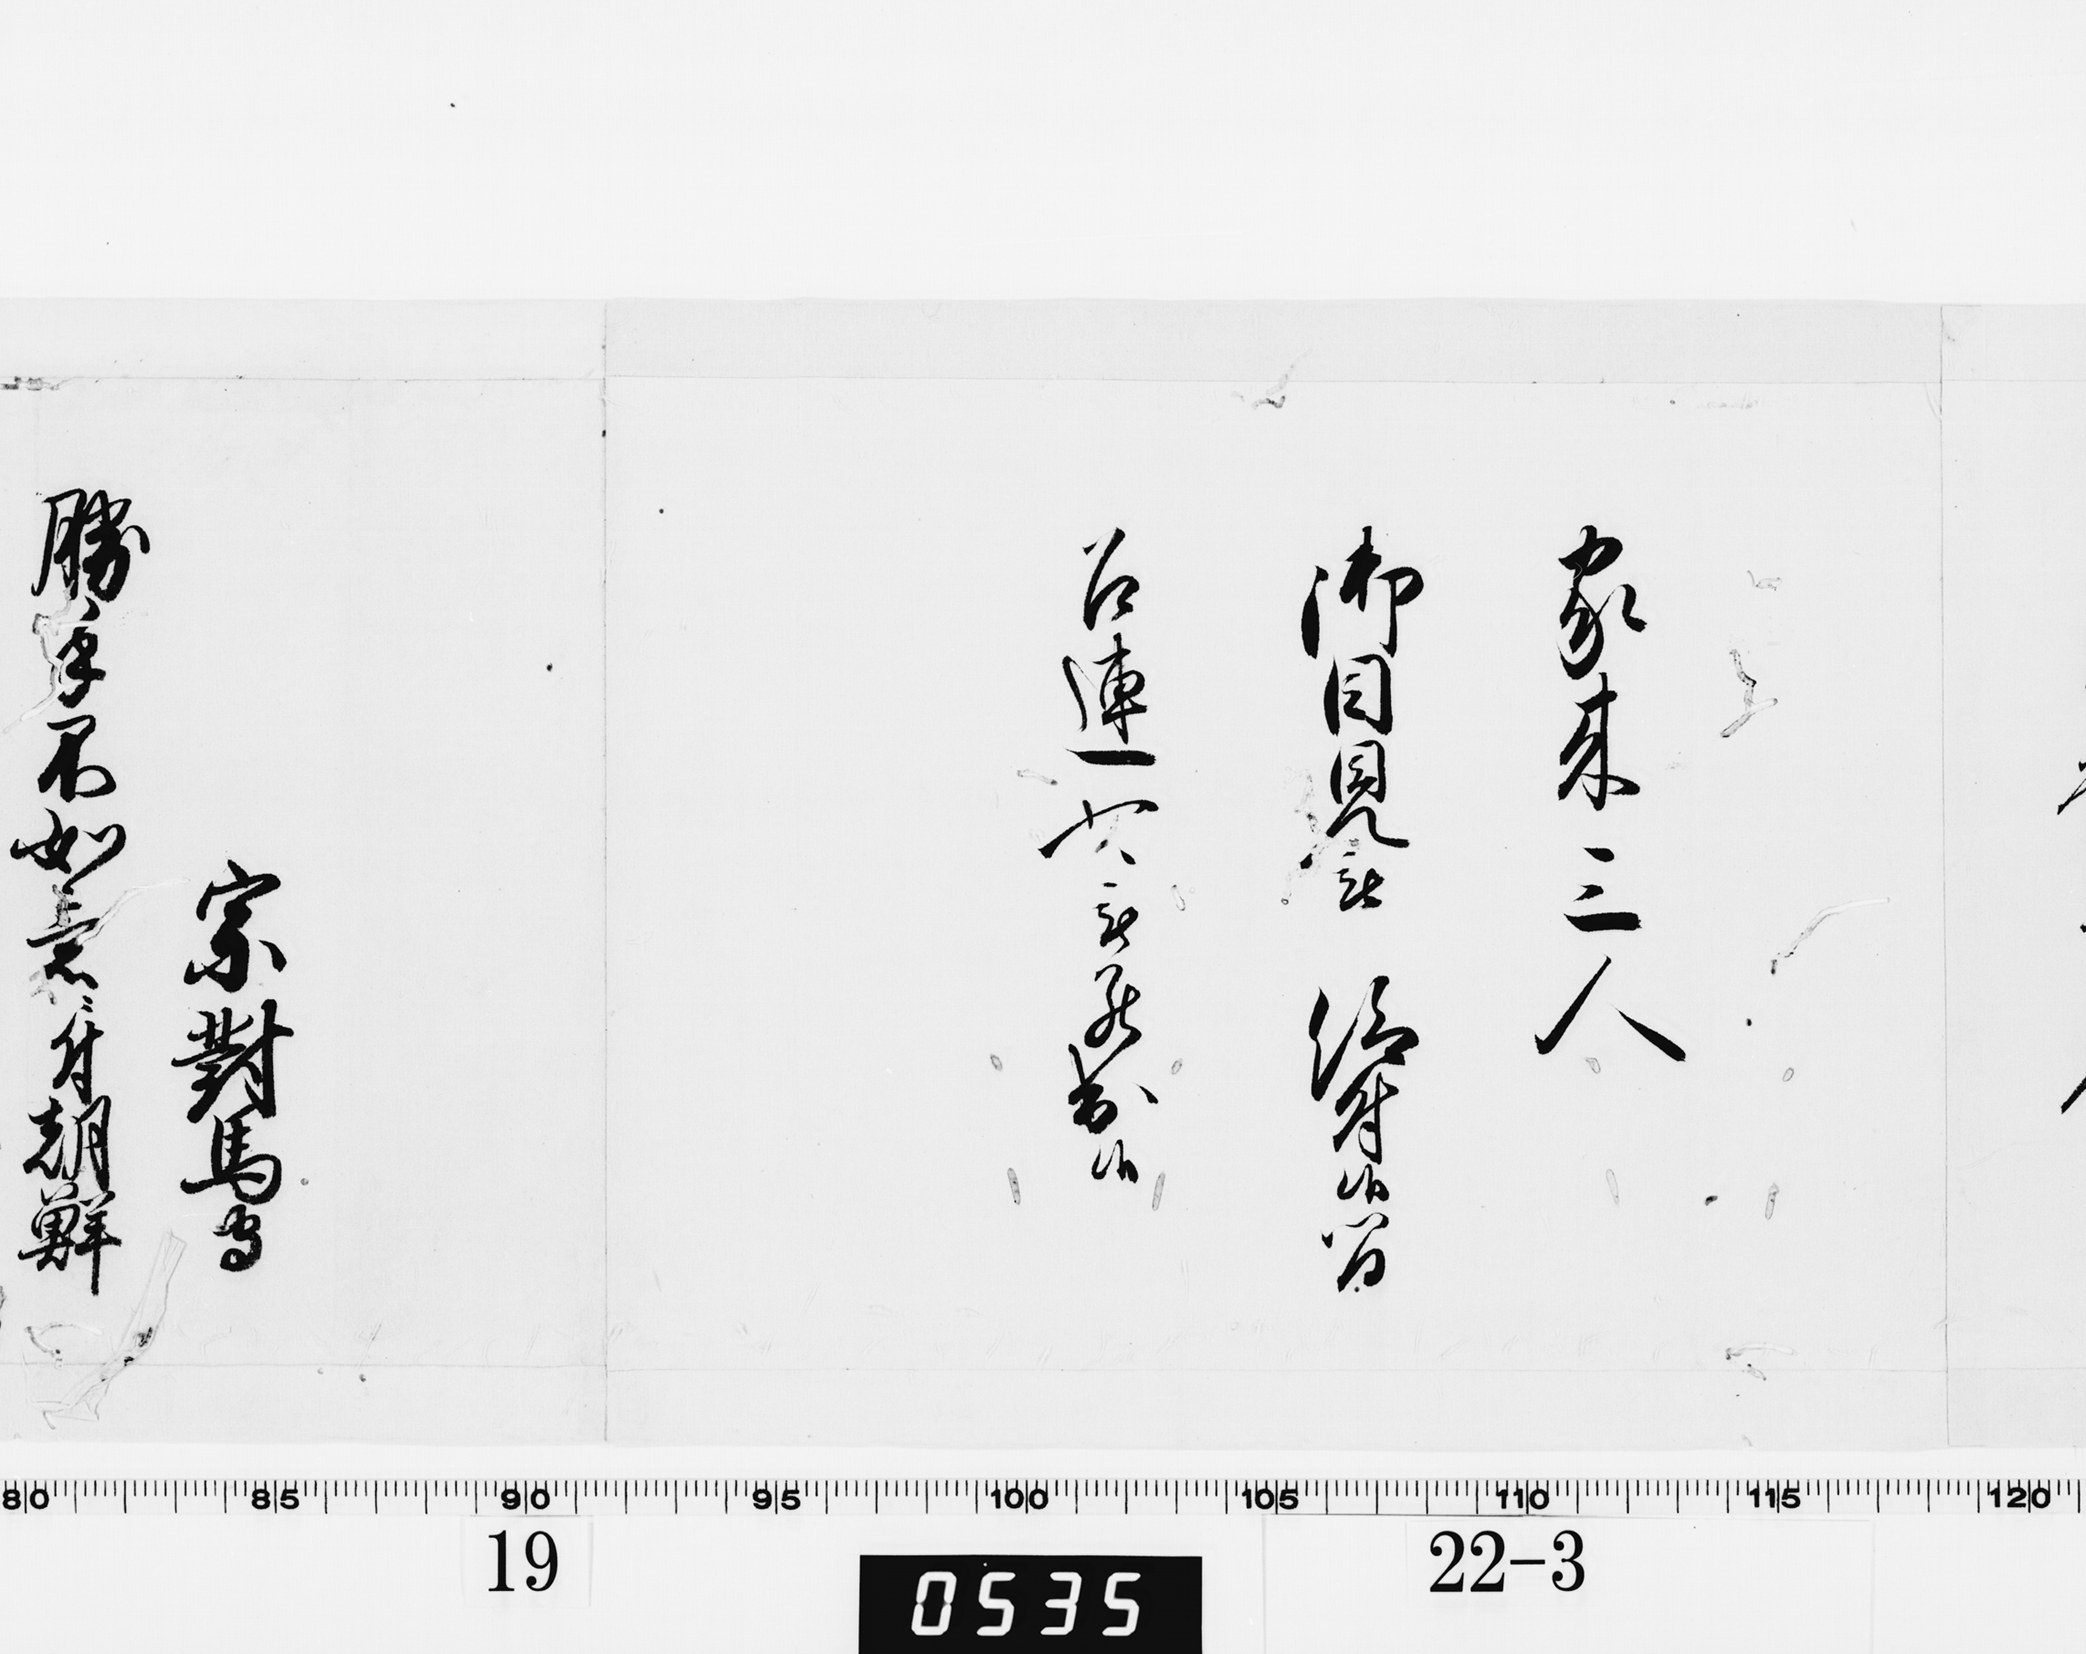 家来三人
御目見被 仰付候間
召連可被罷出候
宗對馬守
勝手不如意付朝鮮
80 85 90 95 100 105 110 115 120
19
0535
22-3